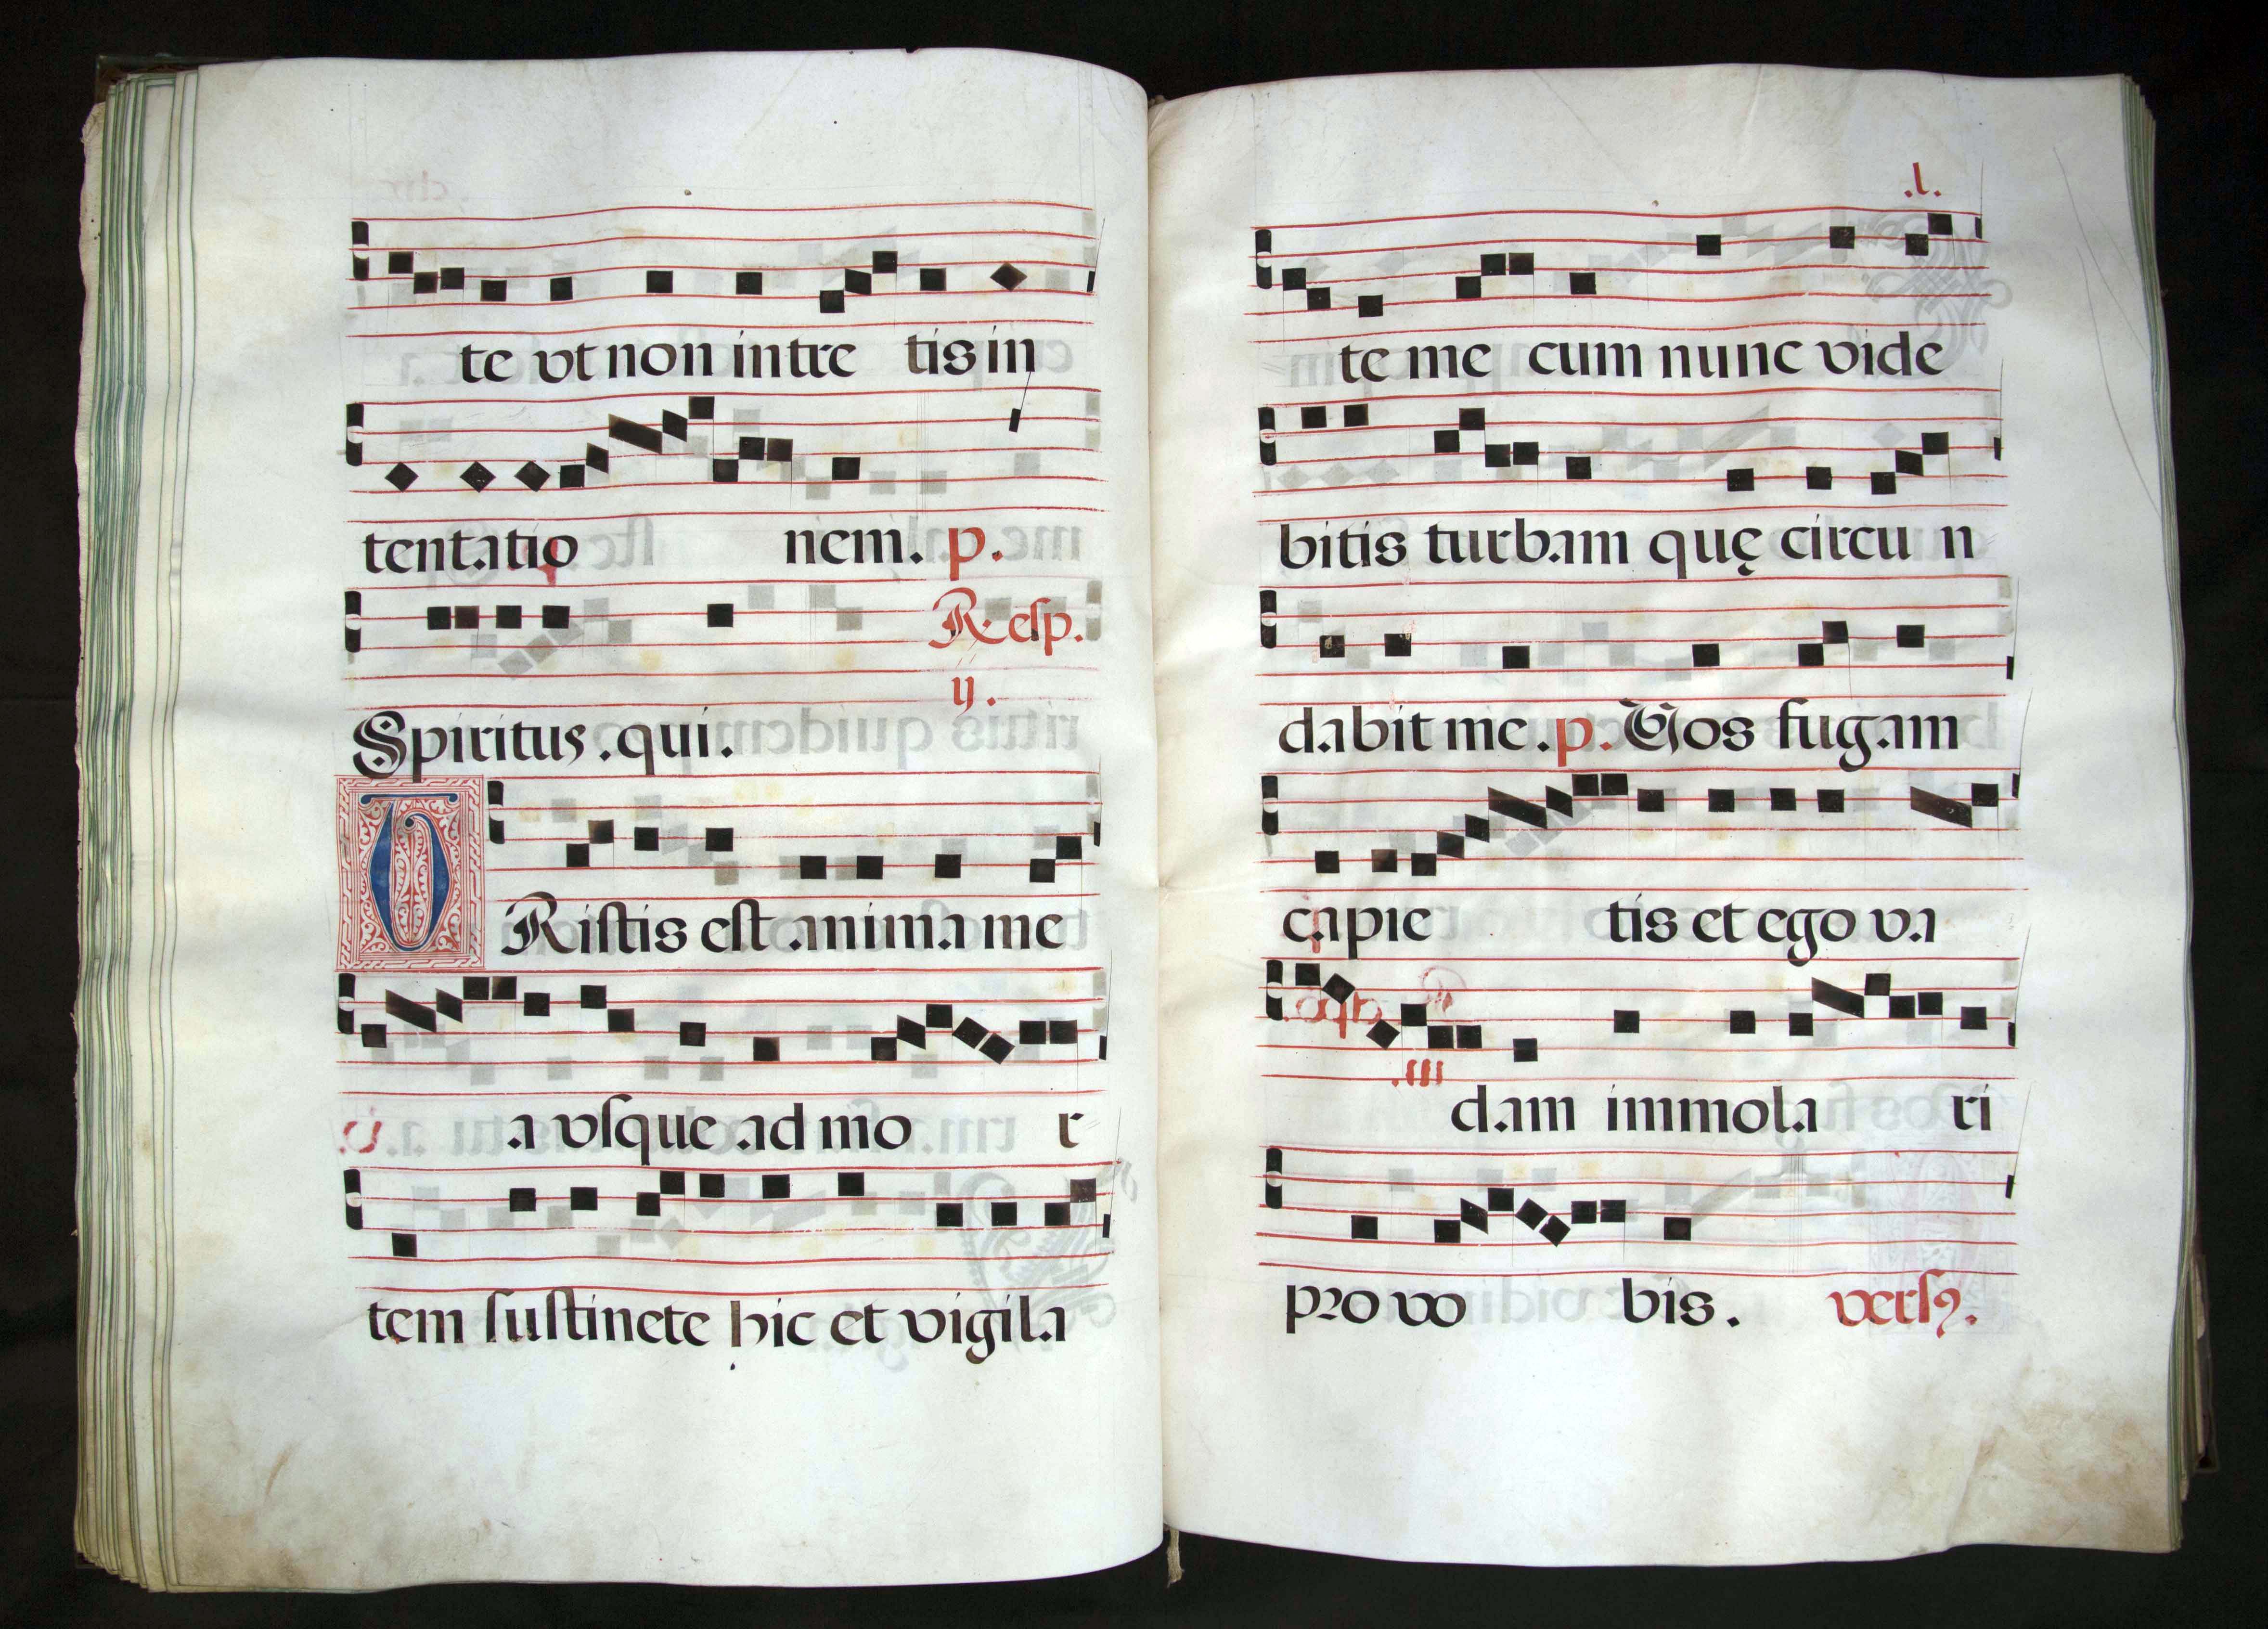 te vt non intre tis in
tentatio nem. p.
Resp.
ij.
Spiritus. qui.
TRistis est anima me
a vsque ad mo r
tem sustinete hic et vigila
.l.
te me cum nunc vide
bitis turbam quę circu n
dabit me. p. Vos fugam
capie tis et ego va
dam immola ri
pro vo bis. versꝰ.